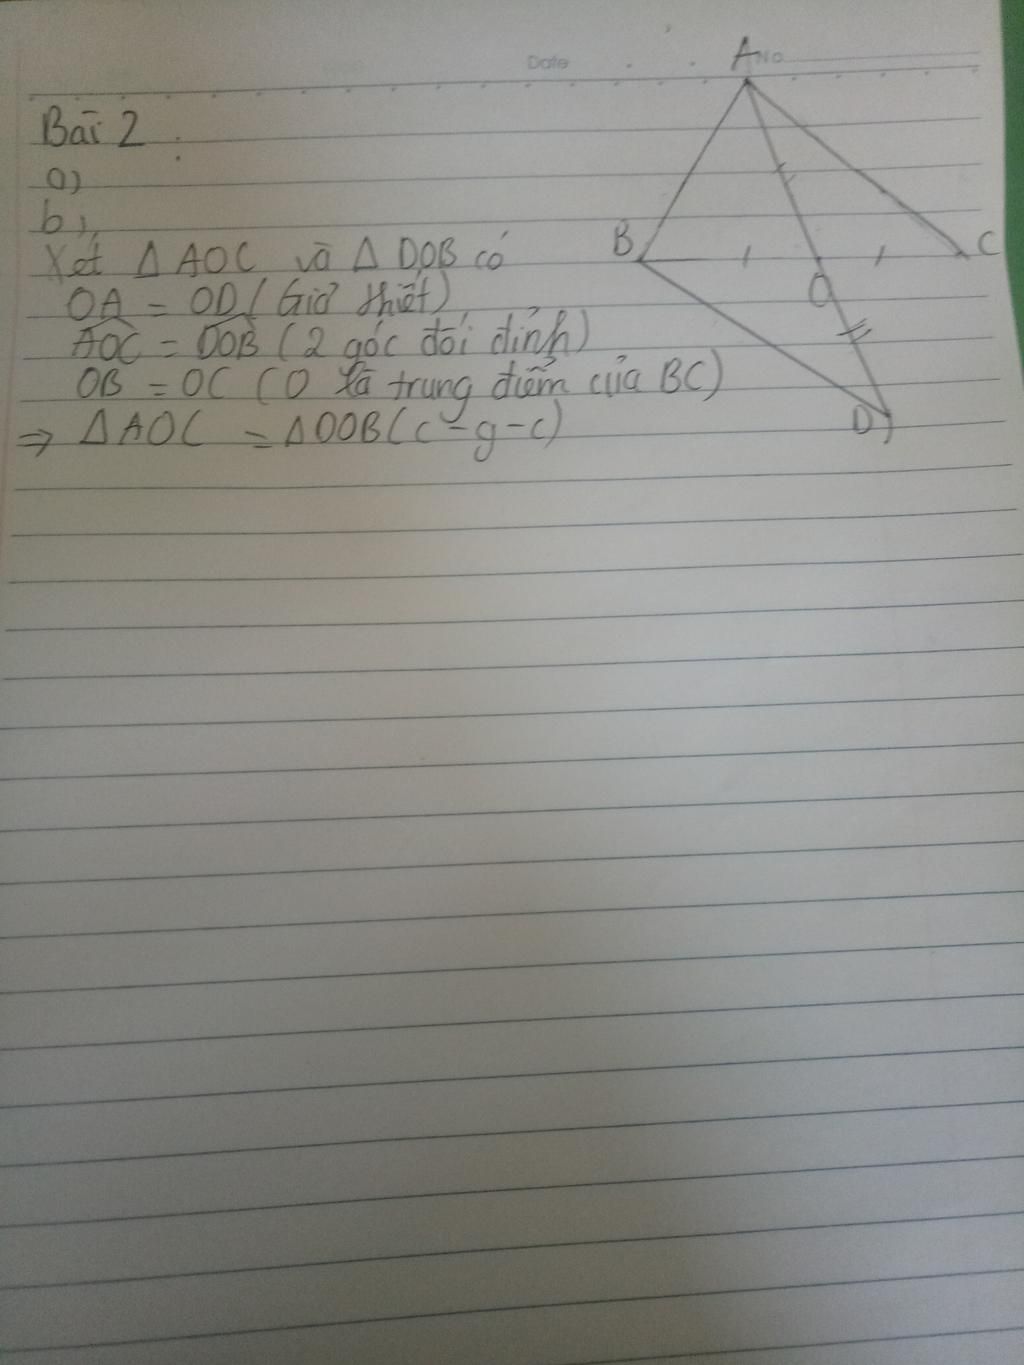 Date
No
Bài 2 :
a)
b),
Xét Δ AOC và Δ DOB có
OA = OD ( Giả thiết)
AOC = DOB (2 góc đối đỉnh)
OB = OC (O là trung điểm của BC)
⇒ ΔAOC = ΔDOB(c-g-c)
A
B
C
O
D